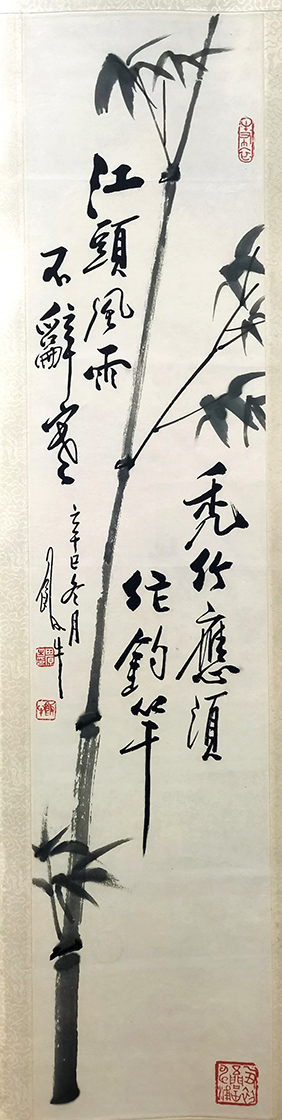 禿竹應須
作釣竿
江頭風雨
不辭寒
辛巳冬月